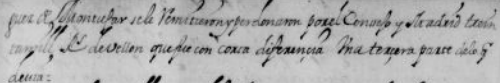 que se le Remitieron y perdonaron por el Consejo y su Mad.d trein
ta mill Rs de vellon que fue con corta diferencia Una tercera parte de lo q
devia: